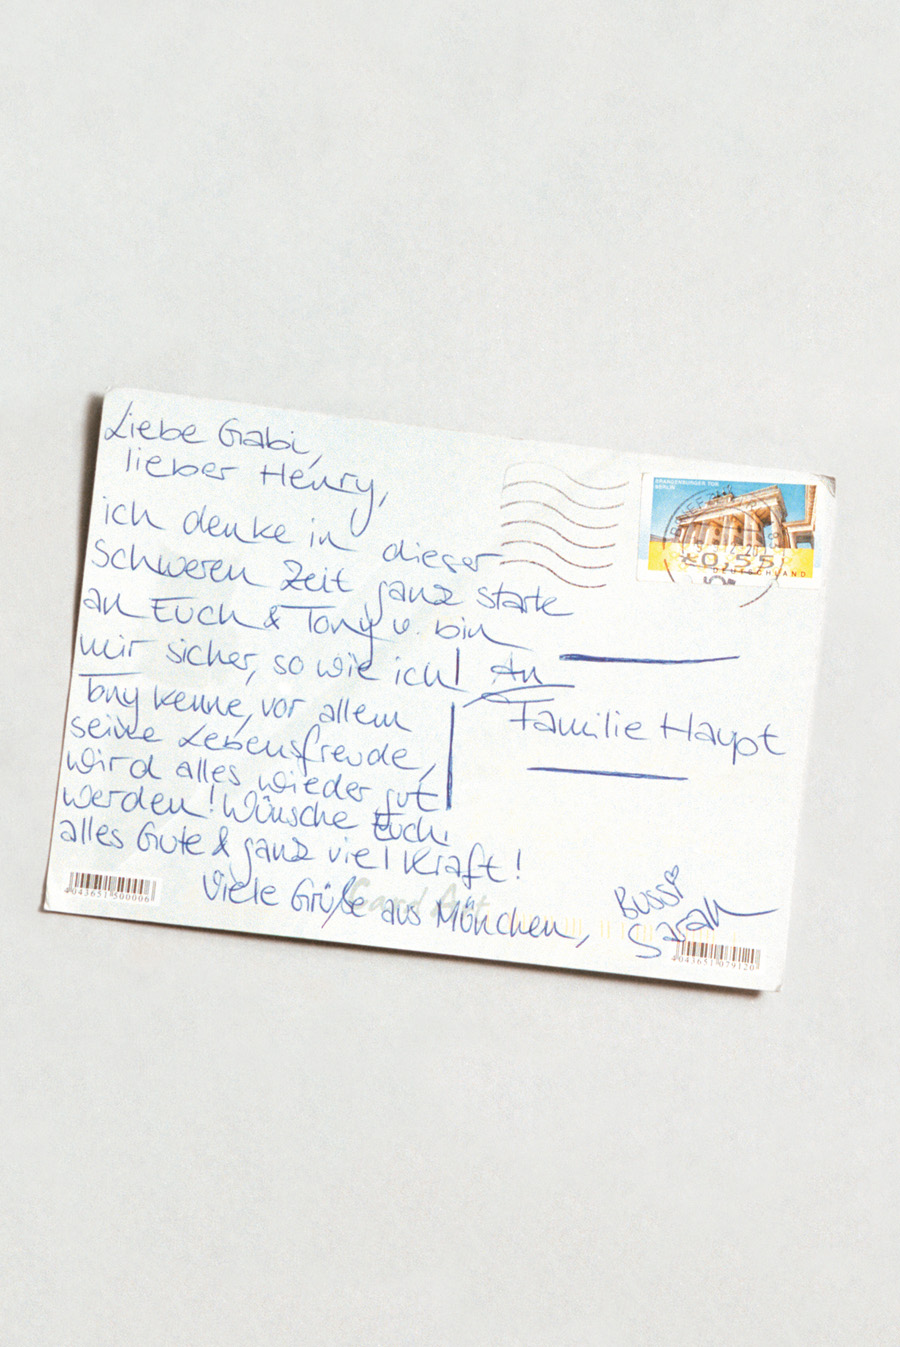 Liebe Gabi,
lieber Henry,
ich denke in dieser
schweren Zeit ganz starke
an Euch & Tony u. bin
mir sicher, so wie ich
Tony kenne, vor allem
seine Lebensfreude,
wird alles wieder gut
werden! Wünsche Euch
alles Gute & ganz viel Kraft!
Viele Grüße aus München,
Bussi
Sarah
An
Familie Haupt
BRANDENBURGER TOR
BERLIN
€0,55
DEUTSCHLAND
4 043651 500006
4 043651 079120